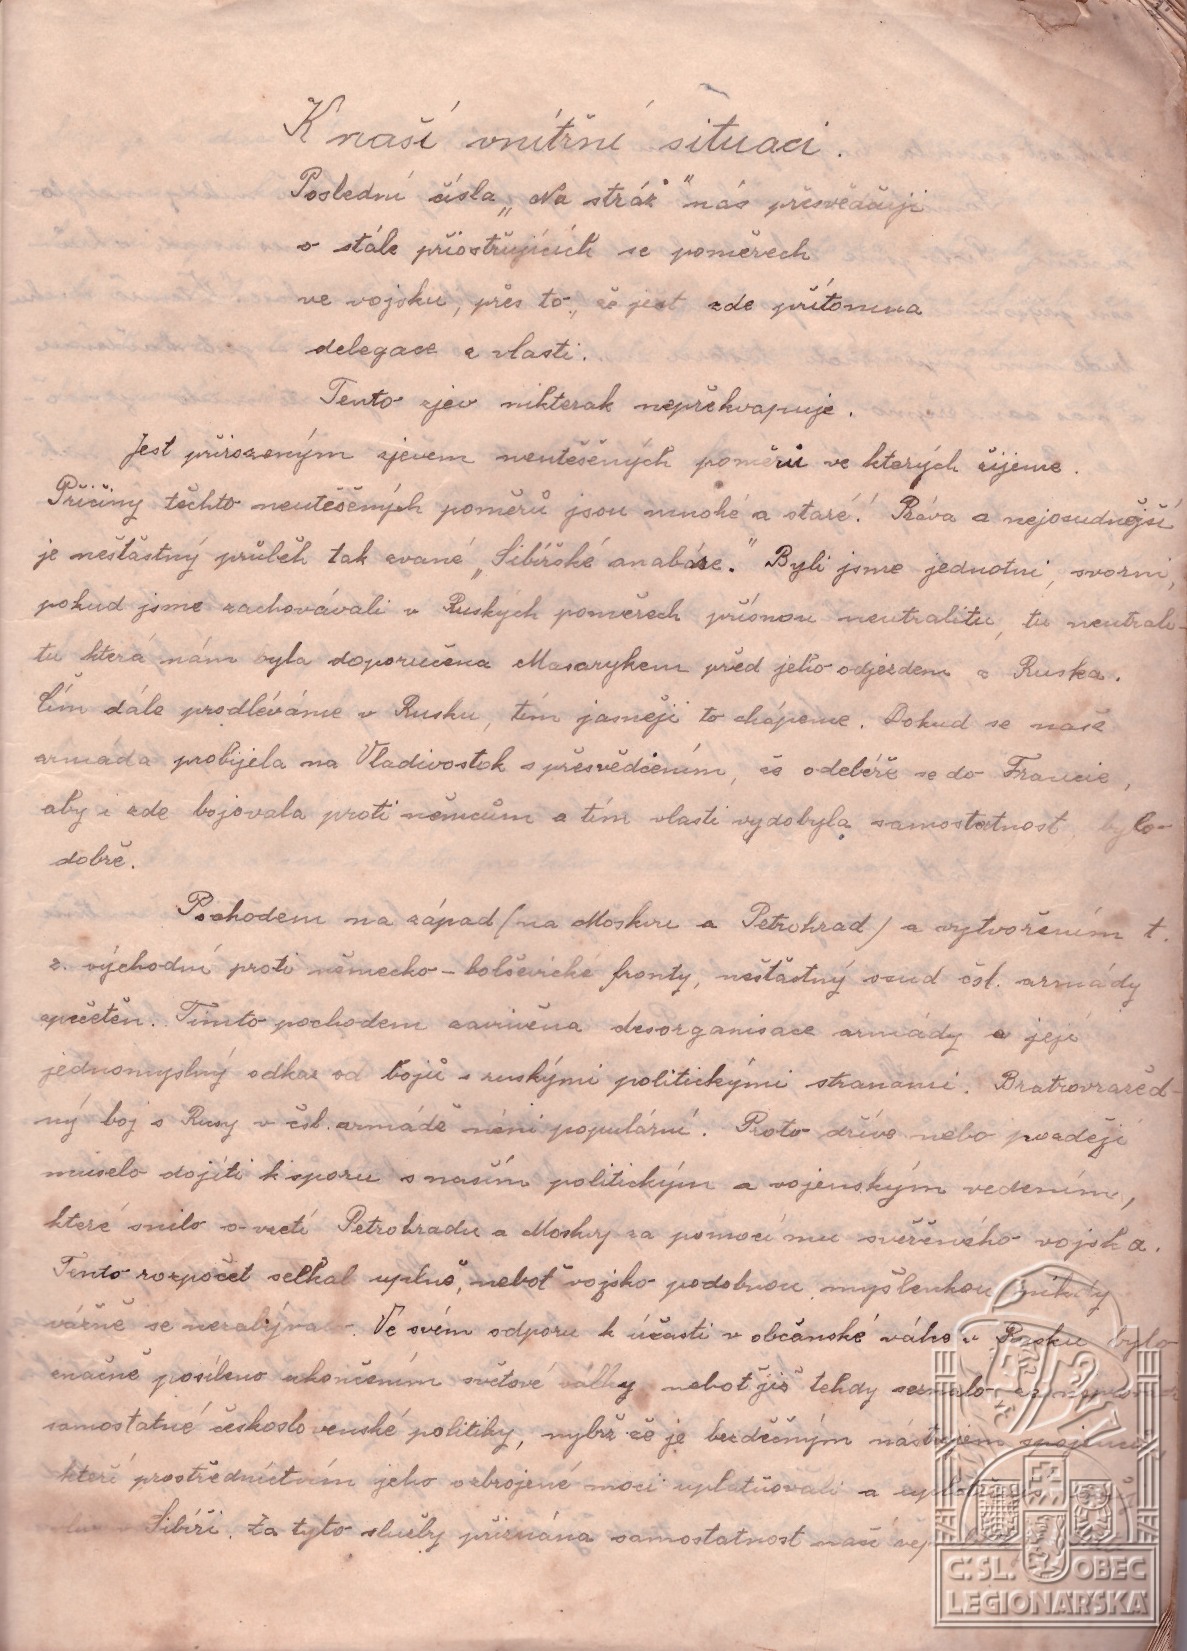 K naší vnitřní situaci.
Poslední čísla „Na stráž" nás přesvědčují
o stále přiostřujících se poměrech
ve vojsku, přes to, že jest zde přítomna
delegace z vlasti.
Tento zjev nikterak nepřekvapuje.
Jest přirozeným zjevem neutěšených poměrů ve kterých žijeme.
Příčiny těchto neutěšených poměrů jsou mnohé a staré! Prává a nejosudnější
je nešťastný průběh tak zvané „Sibiřské anabáse." Byli jsme jednotni, svorni,
pokud jsme zachovávali v Ruských poměrech přísnou neutralitu, tu neutrali-
tu která nám byla doporučena Masarykem před jeho odjezdem z Ruska.
Čím dále prodléváme v Rusku, tím jasněji to chápeme. Pokud se naše
armáda probíjela na Vladivostok s přesvědčením, že odebéře se do Francie,
aby i zde bojovala proti němcům a tím vlasti vydobyla samostatnost, bylo-
dobře.
Pochodem na západ (na Moskvu a Petrohrad) a vytvořením t.
z. východní proti německo-bolševické fronty, nešťastný osud čsl. armády
zpečetěn. Tímto pochodem zavivěna desorganisace armády a její
jednomyslný odkaz od bojů s ruskými politickými stranami. Bratrovražed-
ný boj s Rusy v čsl. armádě není populární. Proto dříve nebo později
muselo dojíti k sporu s naším politickým a vojenským vedením,
které snilo o vzetí Petrohradu a Moskvy za pomoci mu svěřeného vojska.
Tento rozpočet selhal úplně, neboť vojsko podobnou myšlenkou nikdy
vážně se nezabývalo. Ve svém odporu k účasti v občanské válce v Rusku bylo
značně posíleno ukončením světové války neboť již tehdy seznalo že
samostatné československé politiky, nýbrž že je bezděčným nástrojem spojenců,
kteří prostřednictvím jeho ozbrojené moci uplatňovali a
v Sibíři. Za tyto služby přiznána samostatnost naší
Č. SL. OBEC
LEGIONÁŘSKÁ